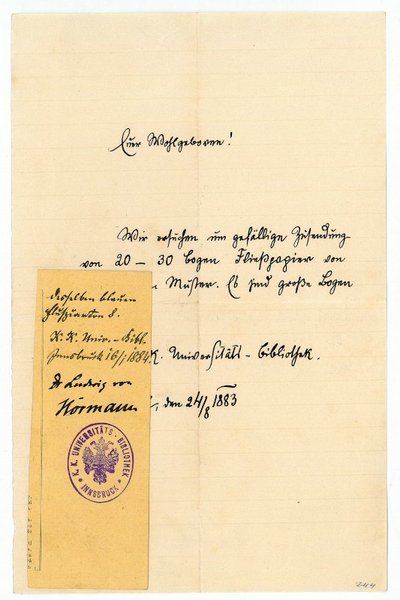 Euer Wohlgeboren!
Wir ersuchen um gefällige Zusendung
von 20 – 30 bogen Fließpapier von
Muster. Es sind große Bogen
K. Universitäts - bibliothek.
den 24/8 1883
desselben blauen
K. K. Univ. - Bibl.
Innsbruck 16/1 1884
Dr Ludwig von
Hörmann
K. K. UNIVERSITÄTS - BIBLIOTHEK
INNSBRUCK
244